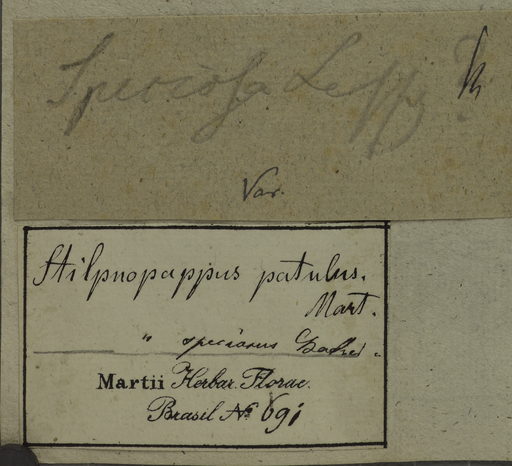 Speciosa Less ?
Var.
Stilpnopappus patulus.
Mart.
" speciosus
Martii Herbar. Florae.
Brasil No 691